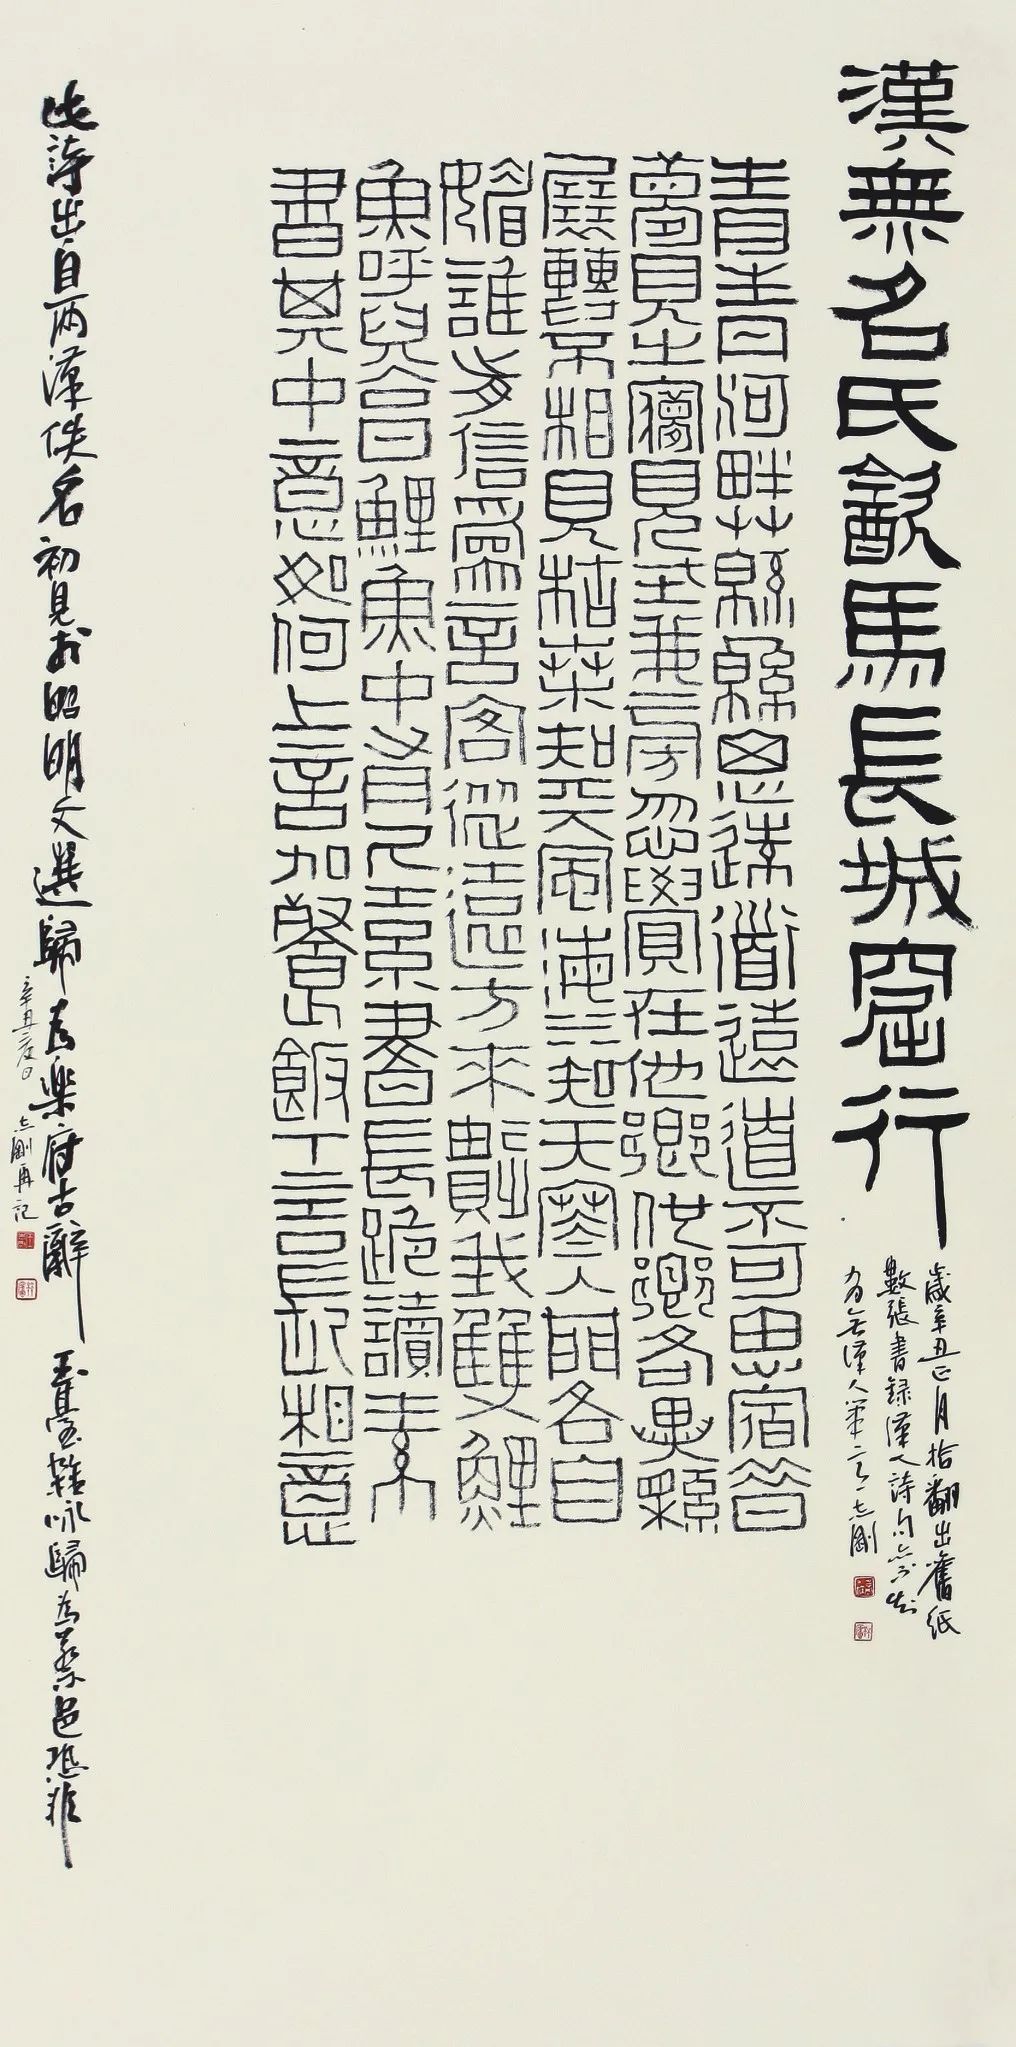 漢無名氏㱃馬長城窟行
歲辛丑正月拾翻出舊紙
數張書録漢人詩句
漢人筆意志剛
青青河畔艸緜緜思遠道遠道不可思宿昔
夢見之夢見在我旁忽覺在他鄉他鄉各異縣
展轉不相見枯桑知天風海水知天寒入門各自
媚誰肯信為言客從遠方來遺我雙鯉
魚呼兒烹鯉魚中有尺素書長跪讀素
書其中意如何上言加餐飯下言長相憶
此詩出自兩漢佚名初見於昭明文選歸為樂府古辭玉臺新詠歸為蔡邕恐非
辛丑夏日志剛再記